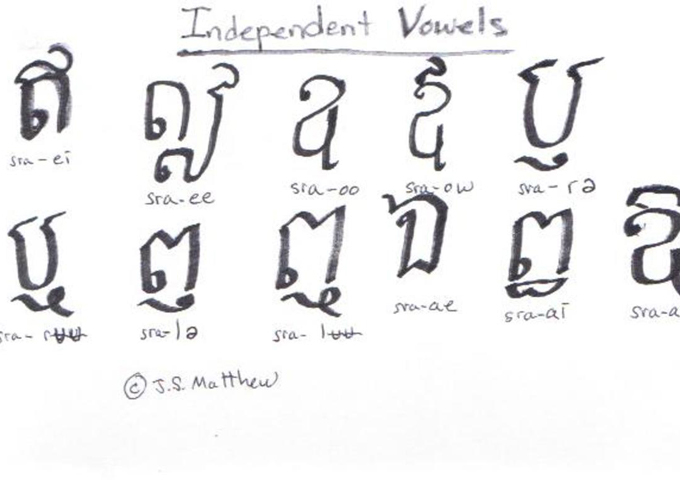 Independent Vowels
ឥ ឦ ឧ ឪ ឫ
sra-ei sra-ee sra-oo sra-ow sra-rə
ឬ ឭ ឮ ឯ ឰ
sra-rʉʉ sra-lə sra-lʉʉ sra-ae sra-ai sra-a
© J.S. Matthew